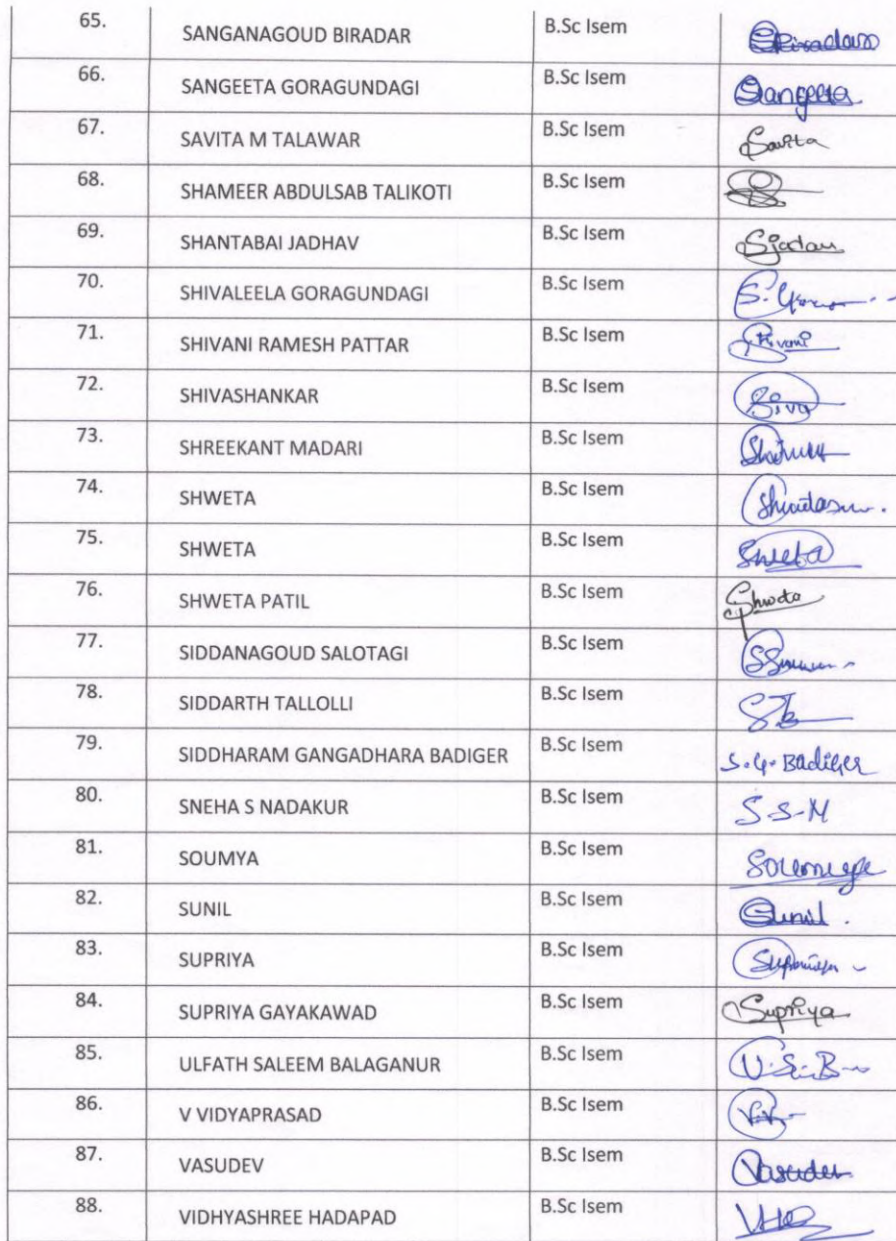 65. SANGANAGOUD BIRADAR B.Sc Isem SBiradar
66. SANGEETA GORAGUNDAGI B.Sc Isem Sangeeta
67. SAVITA M TALAWAR B.Sc Isem Savita
68. SHAMEER ABDULSAB TALIKOTI B.Sc Isem
69. SHANTABAI JADHAV B.Sc Isem Sjadav
70. SHIVALEELA GORAGUNDAGI B.Sc Isem
71. SHIVANI RAMESH PATTAR B.Sc Isem Shivani
72. SHIVASHANKAR B.Sc Isem Siva
73. SHREEKANT MADARI B.Sc Isem
74. SHWETA B.Sc Isem
75. SHWETA B.Sc Isem Shweta
76. SHWETA PATIL B.Sc Isem Shweta
77. SIDDANAGOUD SALOTAGI B.Sc Isem
78. SIDDARTH TALLOLLI B.Sc Isem
79. SIDDHARAM GANGADHARA BADIGER B.Sc Isem S.G. Badiger
80. SNEHA S NADAKUR B.Sc Isem S-S-N
81. SOUMYA B.Sc Isem Soumya
82. SUNIL B.Sc Isem Sunil.
83. SUPRIYA B.Sc Isem
84. SUPRIYA GAYAKAWAD B.Sc Isem Supriya
85. ULFATH SALEEM BALAGANUR B.Sc Isem
86. V VIDYAPRASAD B.Sc Isem
87. VASUDEV B.Sc Isem Vasudev
88. VIDHYASHREE HADAPAD B.Sc Isem